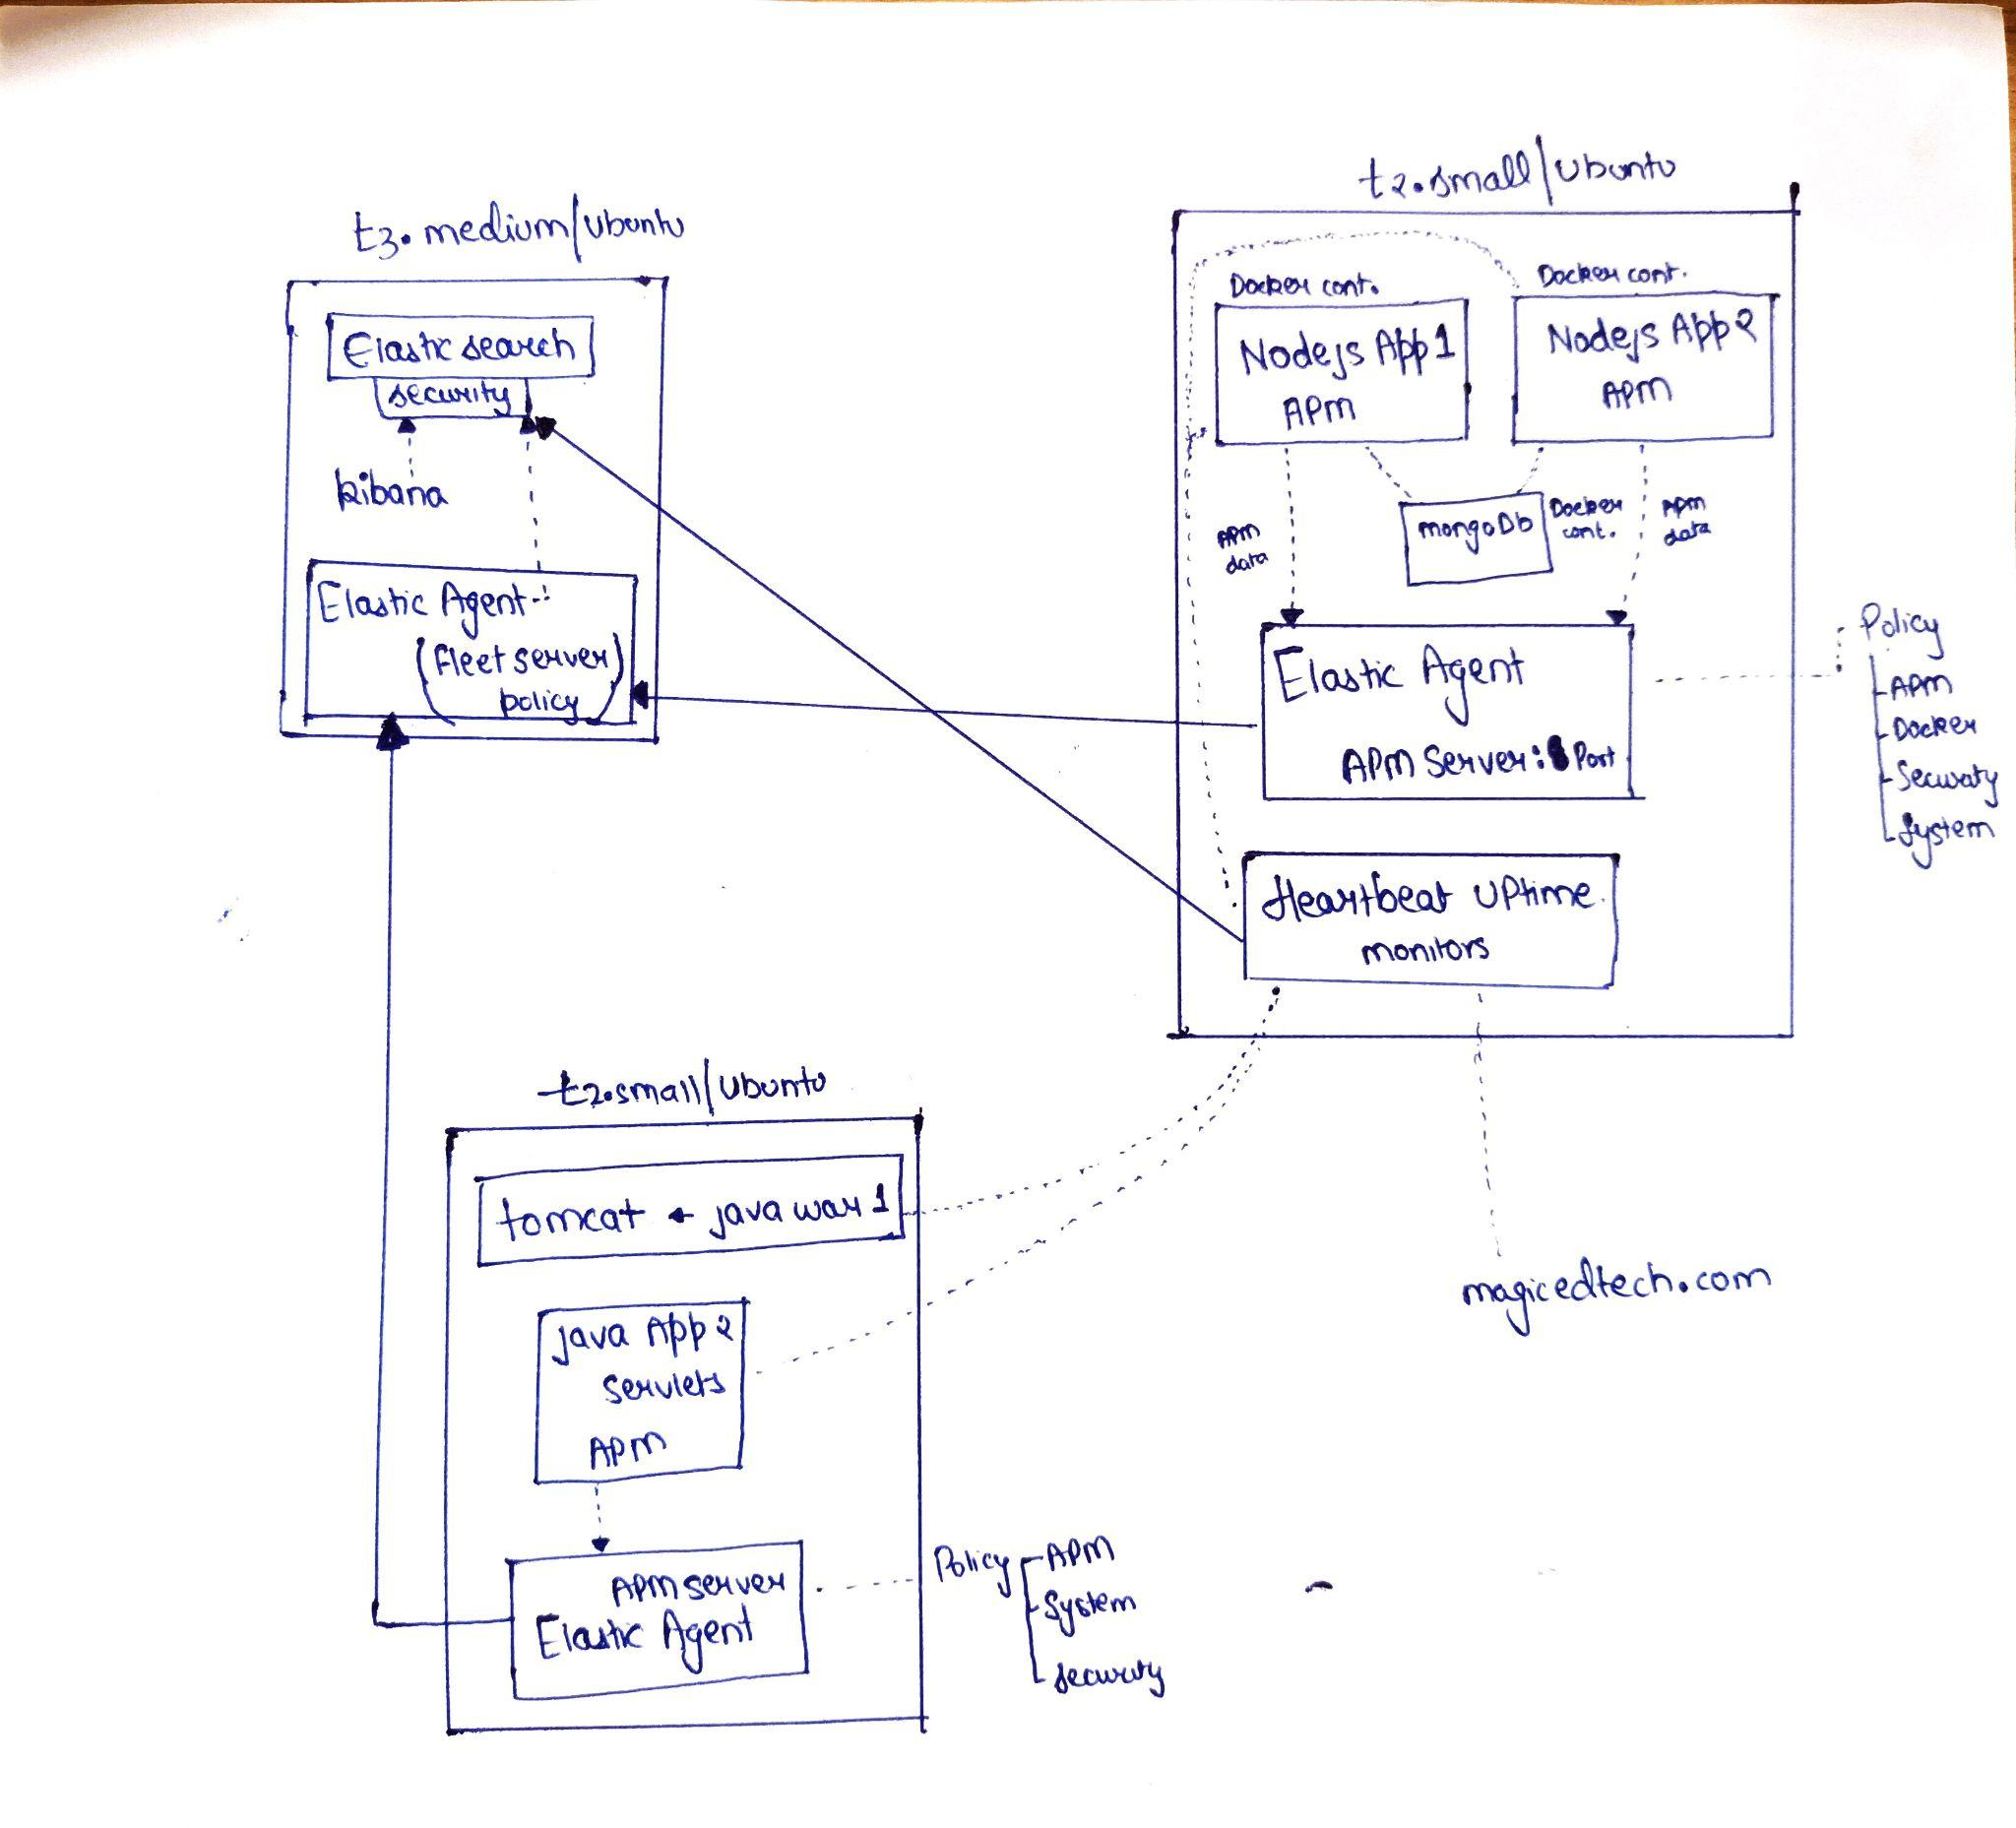 t3.medium/Ubuntu
Elastic search
security
kibana
Elastic Agent
(Fleet server
policy)
t2.small/Ubuntu
Docker cont.
Docker cont.
Nodejs App 1
APM
Nodejs App 2
APM
APM
data
mongoDb
Docker
cont.
APM
data
Elastic Agent
APM Server: Port
Policy
APM
Docker
Security
System
Heartbeat UPtime
monitors
magicedtech.com
t2.small/Ubuntu
tomcat + java war 1
java App 2
Servlets
APM
APM server
Elastic Agent
Policy
APM
System
Security